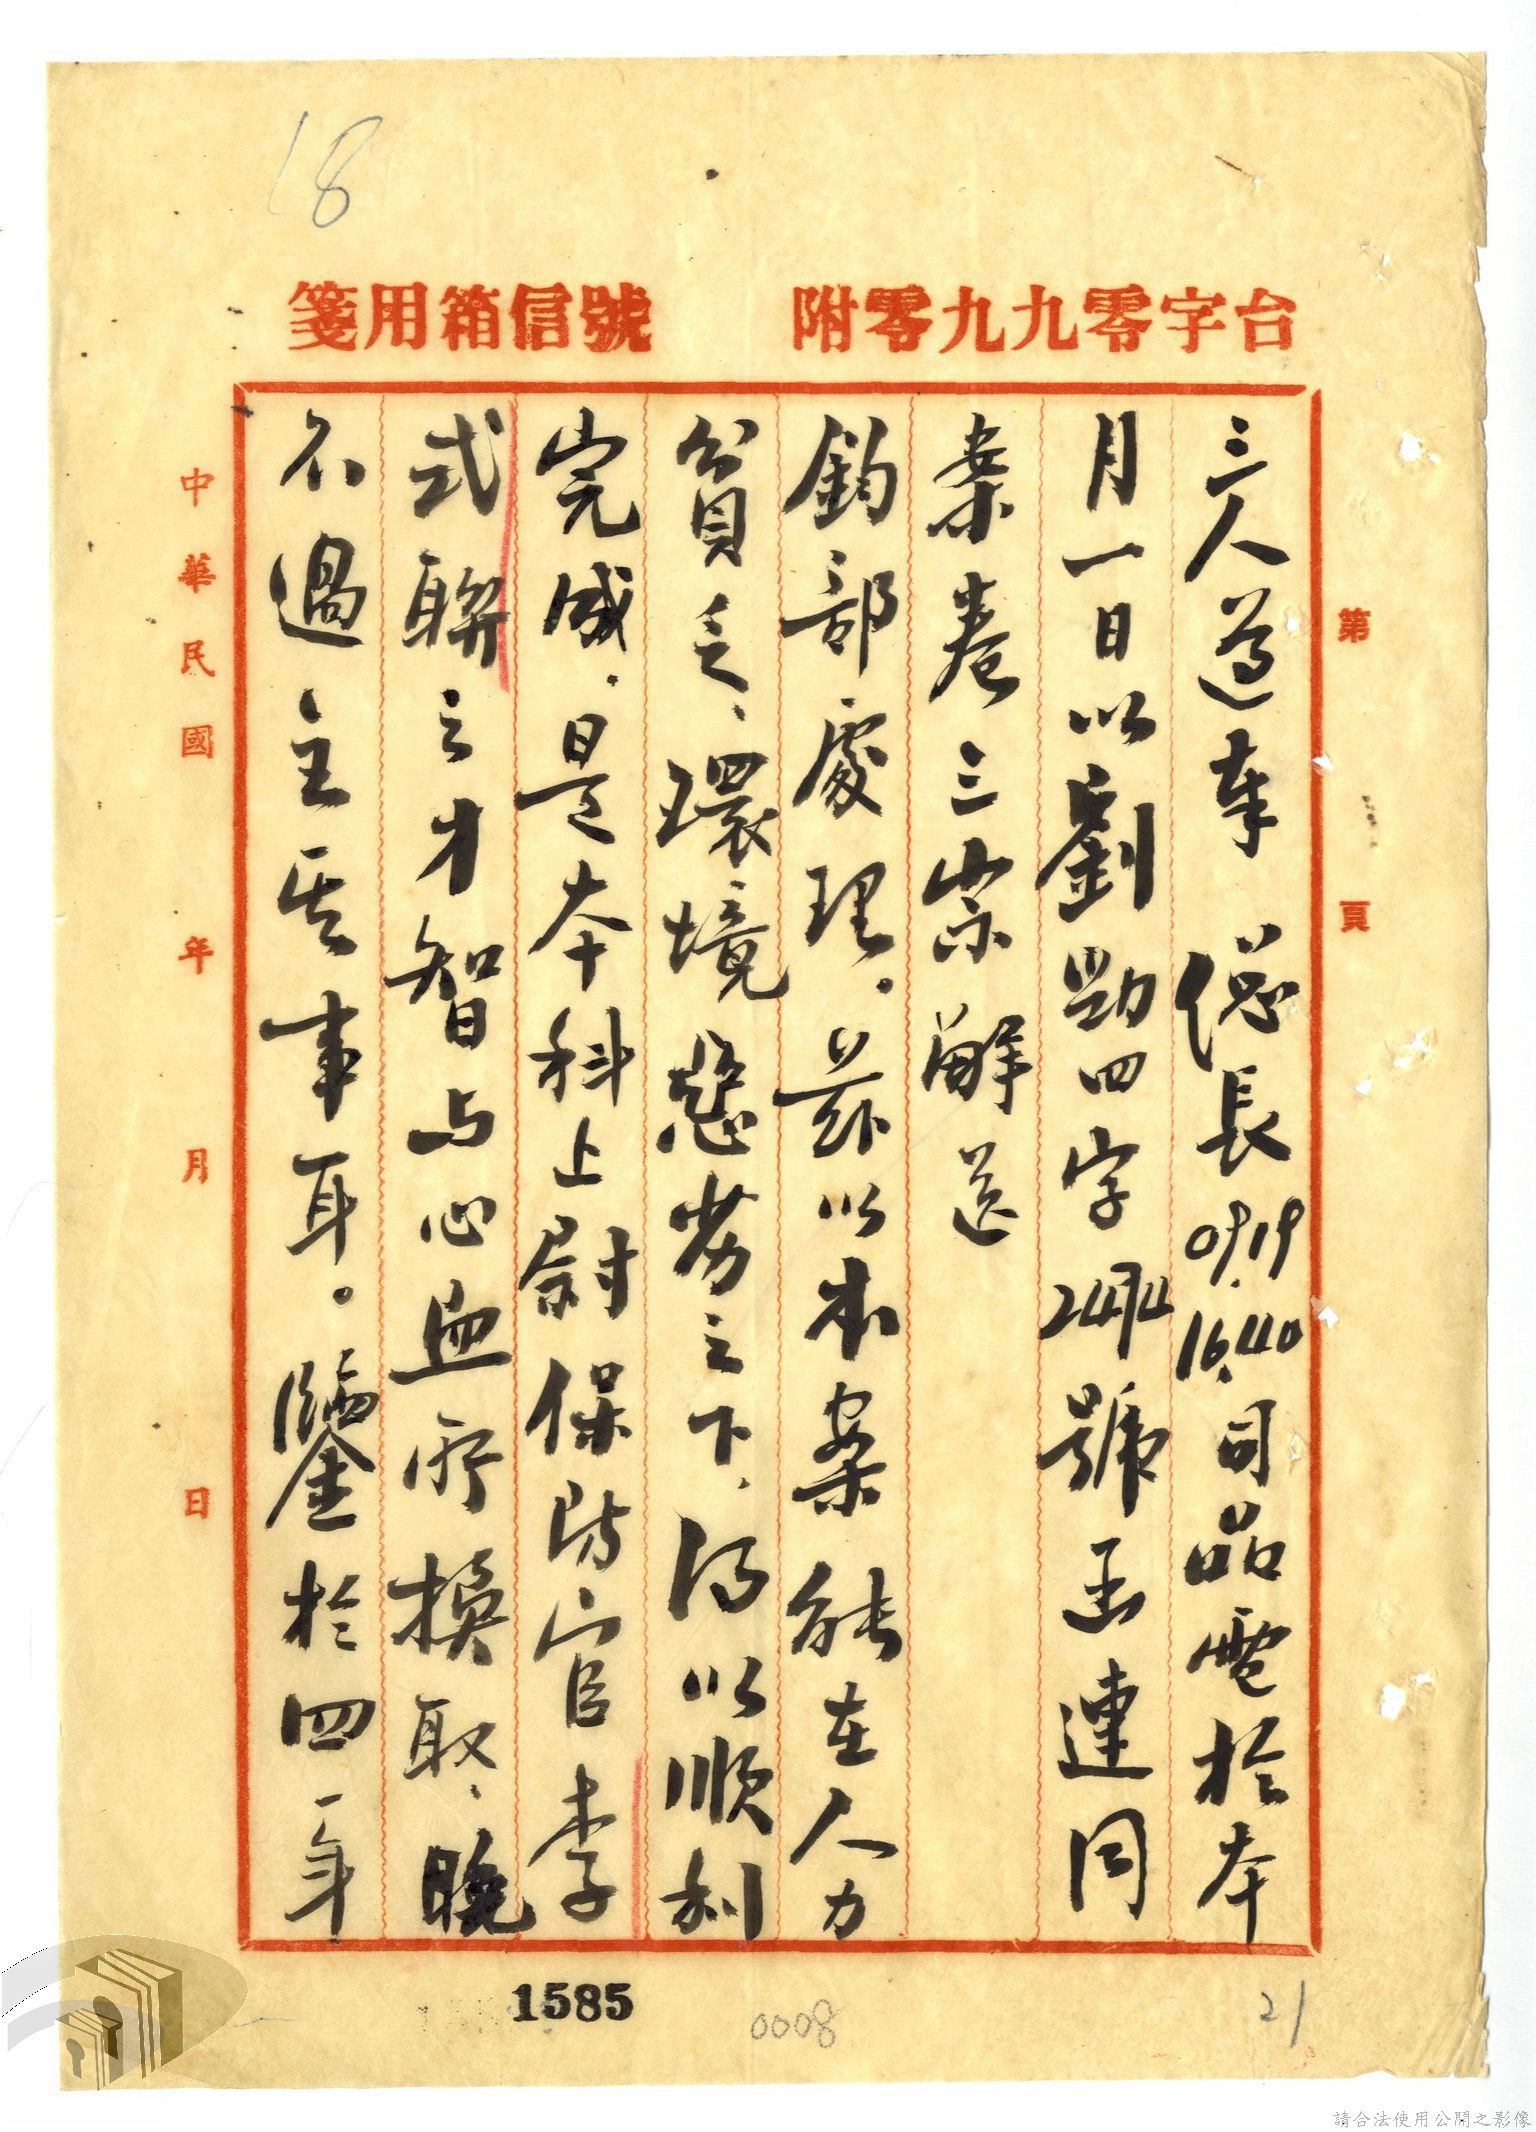 台字零九九零附號信箱用箋
18
第 頁
三人遵奉 總長0919.1640.同品電於本
月一日以劉勛四字 號函連同
案卷三宗解送
鈞部處理。茲以本案能在人力
貧乏、環境惡劣之下,得以順利
完成,是本科上尉保防官李
式聯之才智与心血所換取、晚
不過主其事耳。鑒於四一年
中華民國 年 月 日
1585
0008
21
請合法使用公開之影像